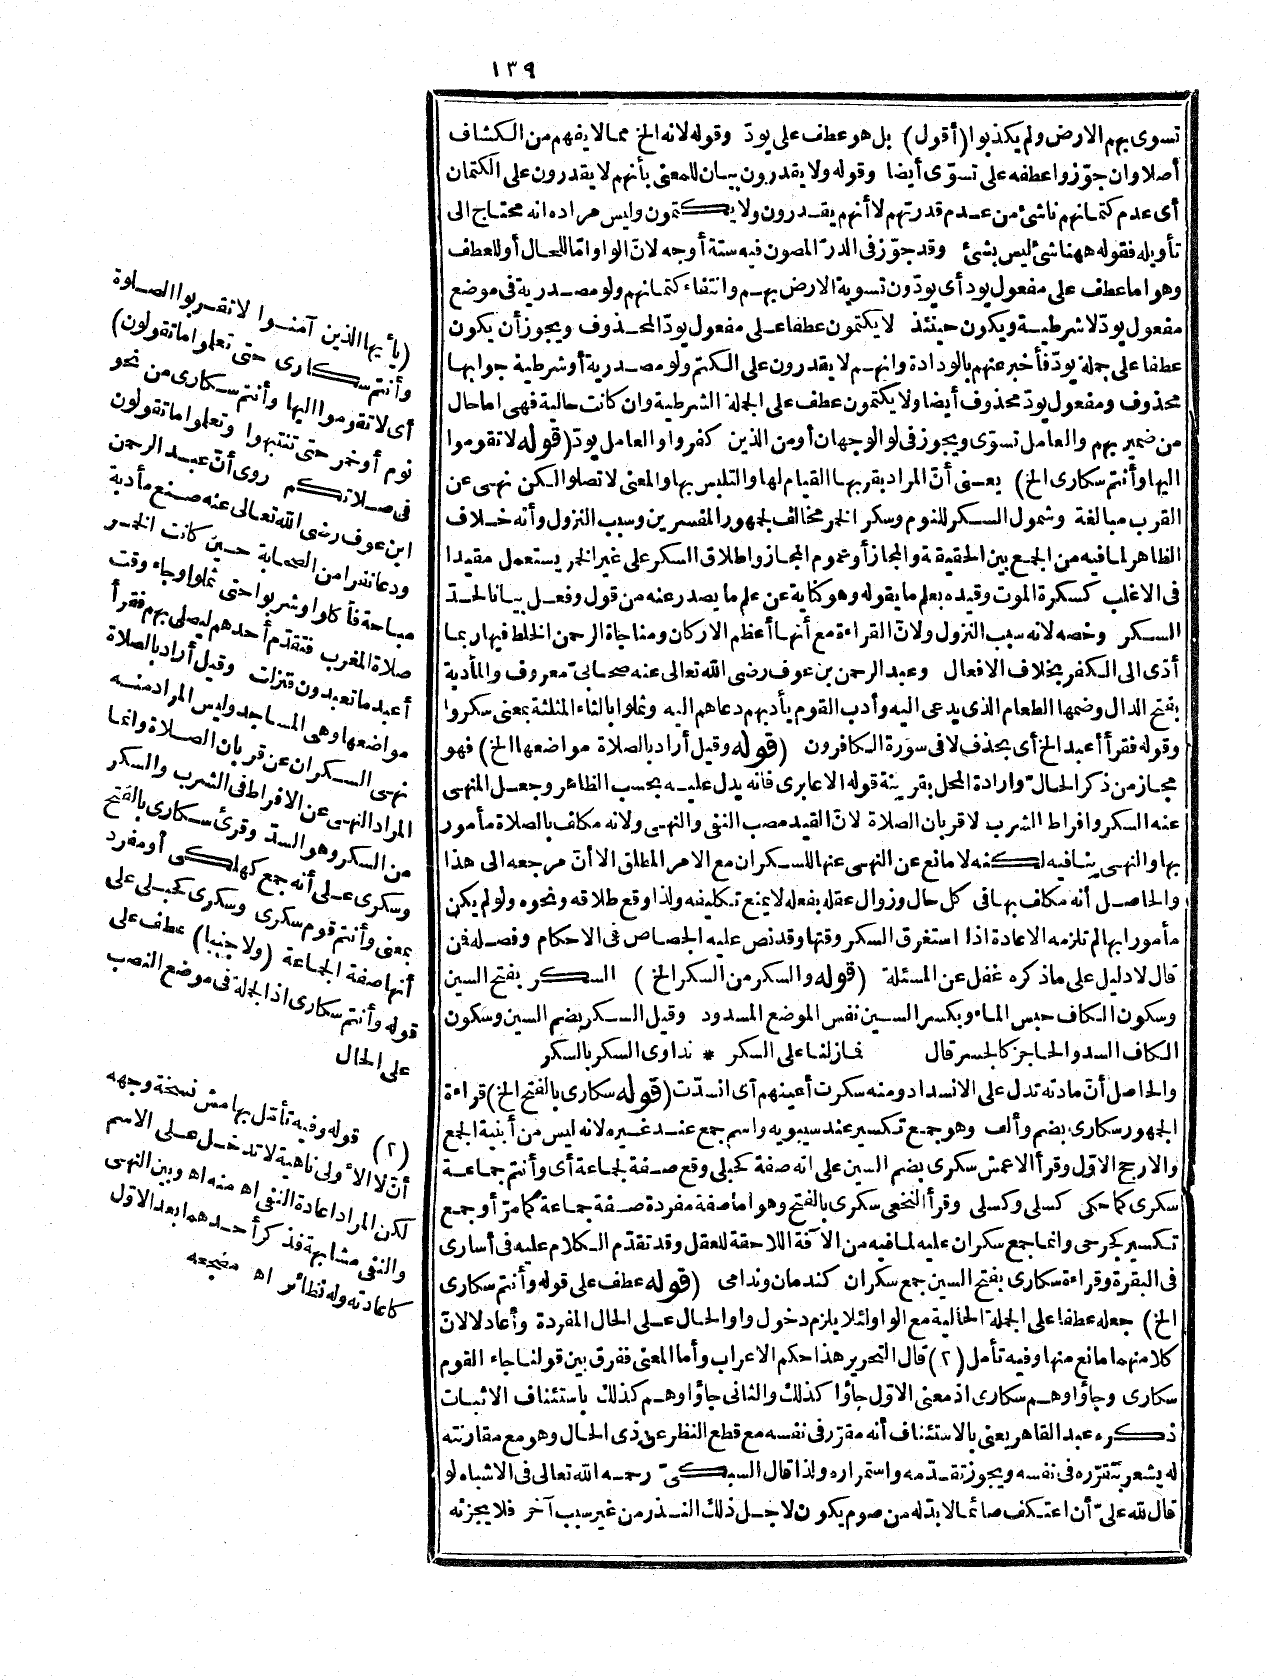 ١٣٩
تسوى بهم الارض ولم يكذبوا (أقول) بل هو عطف على يودّ وقوله لانه الخ مما لا يفهم من الكشاف
أصلا وان جوّزوا عطفه على تسوّى أيضا وقوله ولا يقدرون بيان للمعنى بأنهم لا يقدرون على الكتمان
أى عدم كتمانهم ناشئ من عدم قدرتهم لا أنهم يقدرون ولا يكتمون وليس مراده انه محتاج الى
تأويله فقوله ههنا شئ ليس بشئ وقد جوّز فى الدرّ المصون فيه ستة أوجه لانّ الواو امّا للحال أو للعطف
وهو اما عطف على مفعول يود أى يودّون تسوية الارض بهم وانتفاء كتمانهم ولو مصدرية فى موضع
مفعول يودّ لا شرطية ويكون حينئذ لا يكتمون عطفا على مفعول يودّ المحذوف ويجوز أن يكون
عطفا على جملة يودّ فأخبر عنهم بالودادة وانهم لا يقدرون على الكتم ولو مصدرية أو شرطية جوابها
محذوف ومفعول يودّ محذوف أيضا ولا يكتمون عطف على الجملة الشرطية وان كانت حالية فهى اما حال
من ضمير بهم والعامل تسوّى ويجوز فى لو الوجهان أو من الذين كفروا والعامل يودّ (قوله لا تقوموا
اليها وأنتم سكارى الخ) يعنى أنّ المراد بقربها القيام لها والتلبس بها والمعنى لا تصلوا لكن نهى عن
القرب مبالغة وشمول السكر للنوم وسكر الخمر مخالف لجهور المفسرين وسبب النزول وأنه خلاف
الظاهر لما فيه من الجمع بين الحقيقة والمجاز أو عموم المجاز واطلاق السكر على غير الخمر يستعمل مقيدا
فى الاغلب كسكرة الموت وقيده بعلم ما يقوله وهو كناية عن علم ما يصدر عنه من قول وفعل بيانا لحدّ
السكر وخصه لانه سبب النزول ولانّ القراءة مع أنها أعظم الاركان ومناجاة الرحمن الخلط فيها ربما
أدّى الى الكفر بخلاف الافعال وعبد الرحمن بن عوف رضى الله تعالى عنه صحابىّ معروف والمأدبة
بفتح الدال وضمها الطعام الذى يدعى اليه وأدب القوم يأدبهم دعاهم اليه وثملوا بالثاء المثلثة بمعنى سكروا
وقوله فقرأ أعبد الخ أى بحذف لا فى سورة الكافرون (قوله وقيل أراد بالصلاة مواضعها الخ) فهو
مجاز من ذكر الحالّ وارادة المحل بقرينة قوله الا عابرى فانه يدل عليه بحسب الظاهر وجعل المنهى
عنه السكر وافراط الشرب لا قربان الصلاة لانّ القيد مصب النفى والنهى ولانه مكلف بالصلاة مأمور
بها والنهى ينافيه لكنه لا مانع عن النهى عنها للسكران مع الامر المطلق الا أنّ مرجعه الى هذا
والحاصل أنه مكلف بها فى كل حال وزوال عقله بفعله لا يمنع تكليفه ولذا وقع طلاقه ونحوه ولو لم يكن
مأمورا بها لم تلزمه الاعادة اذا استغرق السكر وقتها وقد نص عليه الجصاص فى الاحكام وفصله فمن
قال لا دليل على ما ذكره غفل عن المسئلة (قوله والسكر من السكر الخ) السكر بفتح السين
وسكون الكاف حبس الماء وبكسر السين نفس الموضع المسدود وقيل السكر بضم السين وسكون
الكاف السد والحاجز كالجسر قال فما زلنا على السكر * نداوى السكر بالسكر
والحاصل أنّ مادته تدل على الانسداد ومنه سكرت أعينهم أى انسدّت (قوله سكارى بالفتح الخ) قراءة
الجمهور سكارى بضم وألف وهو جمع تكسير عند سيبويه واسم جمع عند غيره لانه ليس من أبنية الجمع
والارجح الاوّل وقرأ الاعمش سكرى بضم السين على انه صفة كحبلى وقع صفة لجماعة أى وأنتم جماعة
سكرى كما حكى كسلى وكسلى وقرأ النخعى سكرى بالفتح وهو اما صفة مفردة صفة جماعة كما مرّ أو جمع
تكسير كجرحى وانما جمع سكران عليه لما فيه من الآفة اللاحقة للعقل وقد تقدّم الكلام عليه فى أسارى
فى البقرة وقراءة سكارى بفتح السين جمع سكران كندمان وندامى (قوله عطف على قوله وأنتم سكارى
الخ) جعله عطفا على الجملة الحالية مع الواو لئلا يلزم دخول واو الحال على الحال المفردة وأعاد لا لانّ
كلا منهما مانع منها وفيه تأمل (٢) قال النحرير هذا حكم الاعراب وأما المعنى ففرق بين قولنا جاء القوم
سكارى وجاؤا وهم سكارى اذ معنى الاوّل جاؤا كذلك والثانى جاؤا وهم كذلك باستئناف الاثبات
ذكره عبد القاهر يعنى بالاستئناف أنه مقرّر فى نفسه مع قطع النظر عن ذى الحال وهو مع مقارنته
له يشعر بتقرّره فى نفسه ويجوز تقدّمه واستمراره ولذا قال السبكىّ رحمه الله تعالى فى الاشباه لو
قال لله علىّ أن اعتكف صائما لا بدّ له من صوم يكون لاجل ذلك النذر من غير سبب آخر فلا يجزئه
(يأيها الذين آمنوا لا تقربوا الصلوة
وأنتم سكارى حتى تعلموا ما تقولون)
أى لا تقوموا اليها وأنتم سكارى من نحو
نوم أو خمر حتى تنتبهوا وتعلموا ما تقولون
فى صلاتكم روى أنّ عبد الرحمن
ابن عوف رضى الله تعالى عنه صنع مأدبة
ودعا نفرا من الصحابة حين كانت الخمر
مباحة فأكلوا وشربوا حتى ثملوا وجاء وقت
صلاة المغرب فتقدّم أحدهم ليصلى بهم فقرأ
أعبد ما تعبدون فنزلت وقيل أراد بالصلاة
مواضعها وهى المساجد وليس المراد منه
نهى السكران عن قربان الصلاة وانما
المراد النهى عن الافراط فى الشرب والسكر
من السكر وهو السدّ وقرئ سكارى بالفتح
وسكرى على أنه جمع كهلكى أو مفرد
بمعنى وأنتم قوم سكرى وسكرى كحبلى على
أنها صفة الجماعة (ولا جنبا) عطف على
قوله وأنتم سكارى اذ الجملة فى موضع النصب
على الحال
(٢) قوله وفيه تأمّل بهامش نسخة وجهه
أنّ لا الاولى ناهية لا تدخل على الاسم
لكن المراد اعادة النفى اه منه اه وبين النهى
والنفى مشابهة فذكر أحدهما بعد الاوّل
كاعادته وله نظائر اه مصححه